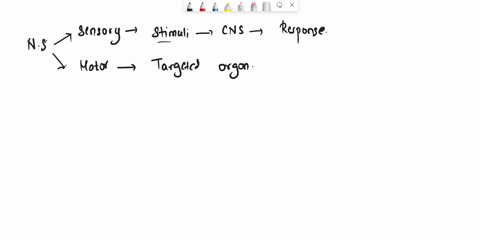 N.S
Sensory → Stimuli → CNS → Response.
Motor → Targeted organ.